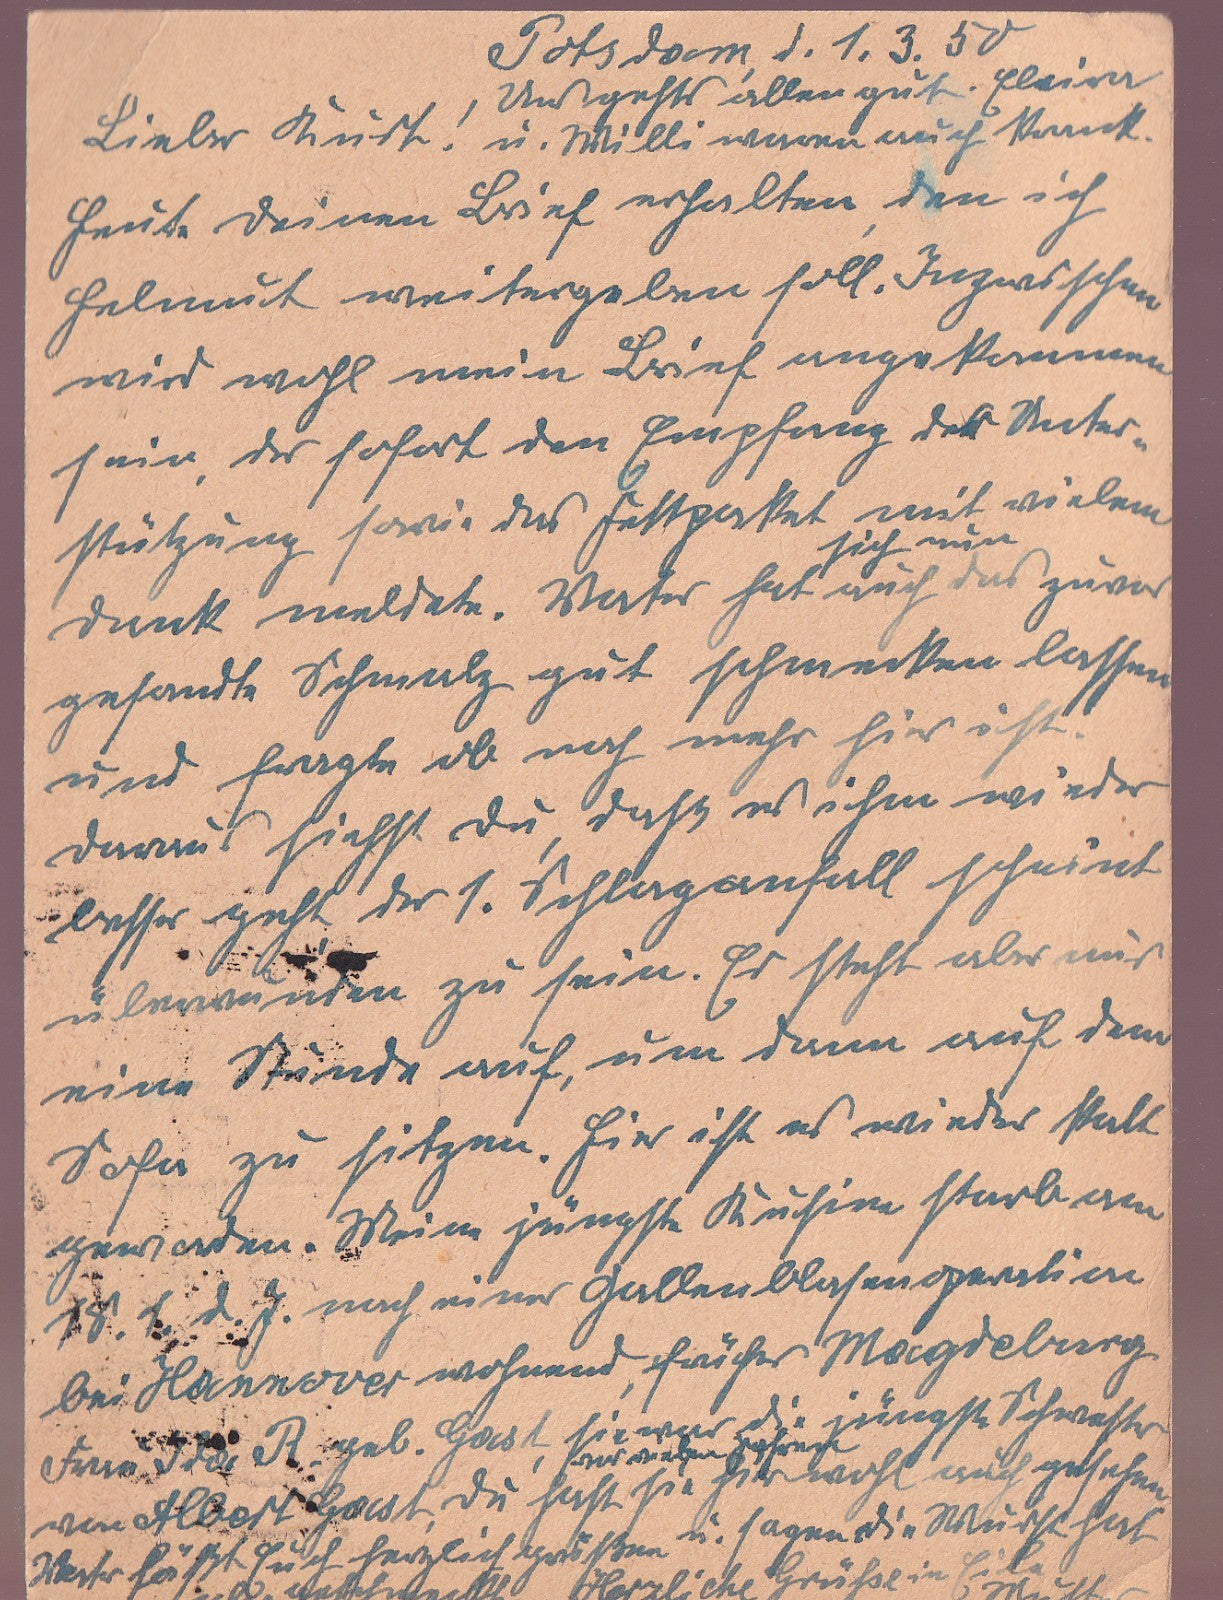 Potsdam, d. 1. 3. 50
Uns gehts allen gut. Elvira
Lieber Kurt! u. Willi waren auch krank.
Heute Deinen Brief erhalten, den ich
Helmut weitergeben soll. Inzwischen
wird wohl mein Brief angekommen
sein, der sofort den Empfang der Unter-
stützung sowie das Fettpaket mit vielem
Dank meldete. Vater hat auch das zuvor
sich nun
gesandte Schmalz gut schmecken lassen
und fragte ob noch mehr hier ist.
Daraus siehst Du, dass es ihm wieder
besser geht, der 1. Schlaganfall scheint
überwunden zu sein. Er steht aber nur
eine Stunde auf, um dann auf dem
Sofa zu sitzen. Hier ist es wieder kalt
geworden. Meine jüngste Kusine starb am
18. 1. d. J. nach einer Gallenblasenoperation
bei Hannover wohnend, früher Magdeburg
Frau Ida R. geb. Gast, sie war die jüngste Schwester
vor vielen Jahren
von Albert Gast, Du hast sie hier wohl auch gesehen
Vater läßt Euch herzlich grüßen u. sagen die Wurst hat
geschmeckt. Herzliche Grüße in Eile
Mutter